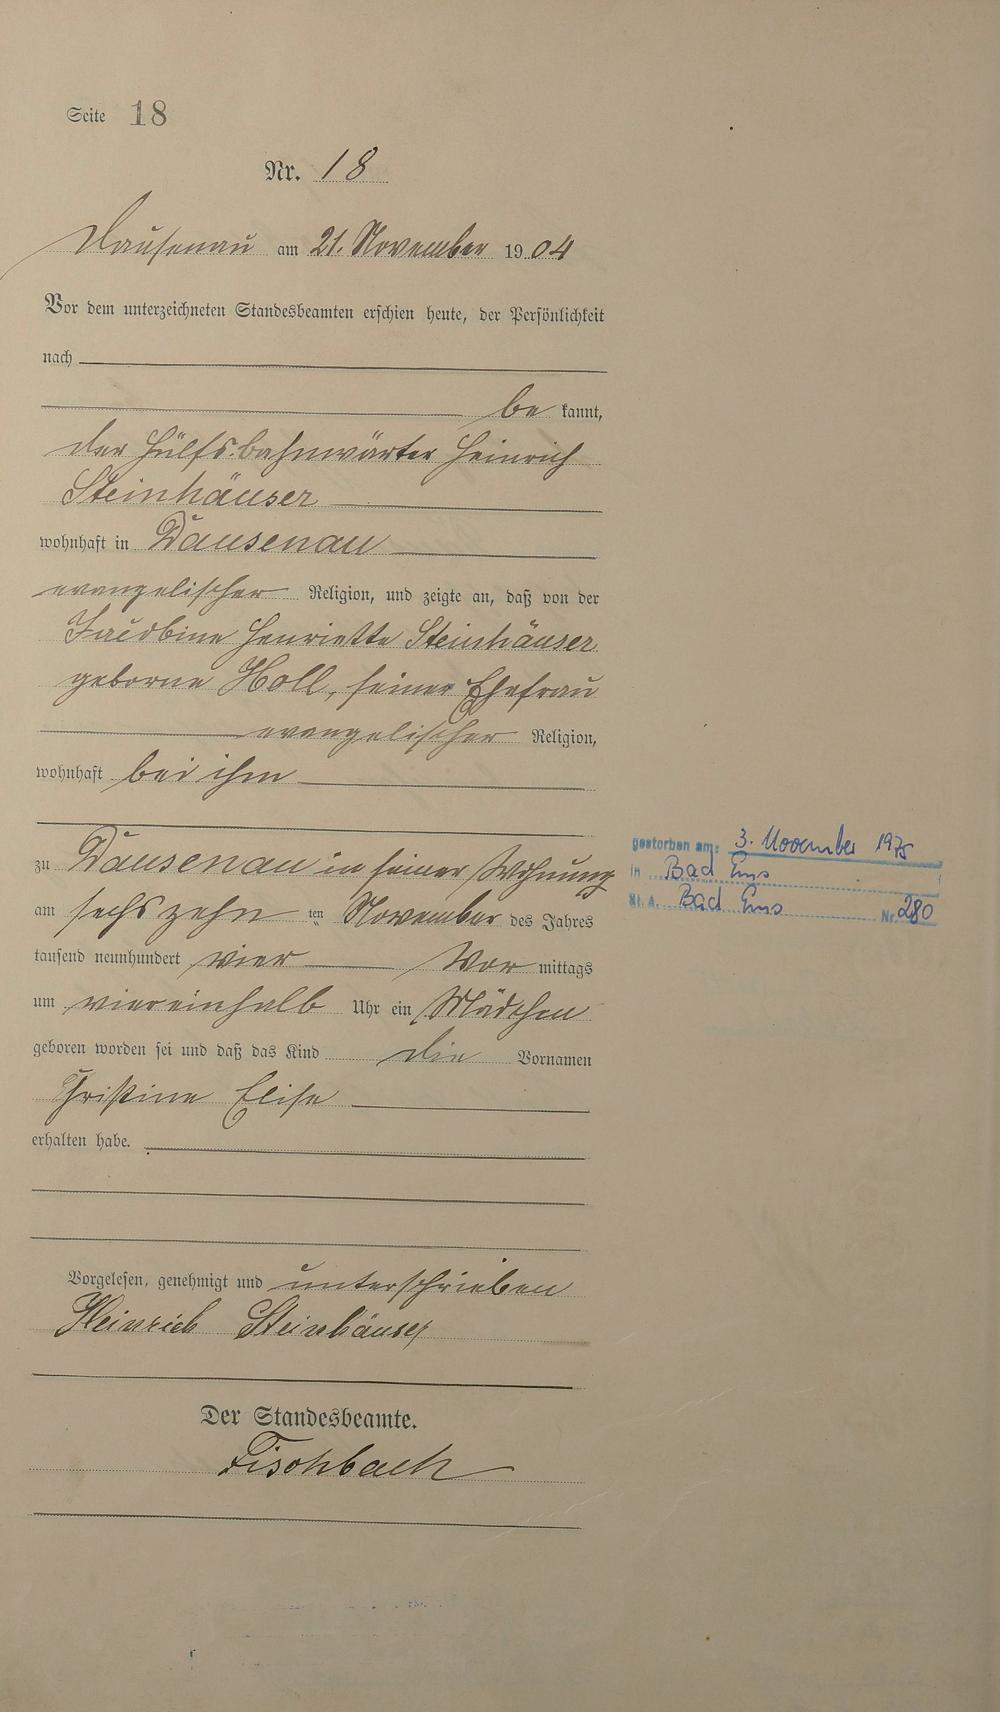 Seite 18
Nr. 18
Dausenau am 21. November 1904
Vor dem unterzeichneten Standesbeamten erschien heute, der Persönlichkeit
nach
be kannt,
der Hülfs-bahnwärter Heinrich
Steinhäuser
wohnhaft in Dausenau
evangelischer Religion, und zeigte an, daß von der
Henriette Steinhäuser
geborne Holl, seiner Ehefrau
evangelischer Religion,
wohnhaft bei ihm
zu Dausenau in seiner Wohnung
am sechszehn ten November des Jahres
tausend neunhundert vier Vor mittags
um viereinhalb Uhr ein Mädchen
geboren worden sei und daß das Kind die Vornamen
Christine Elise
erhalten habe.
Vorgelesen, genehmigt und unterschrieben
Heinrich Steinhäuser
Der Standesbeamte.
Fischbach
gestorben am: 3. November 1975
in Bad Ems
St. A. Bad Ems Nr. 280